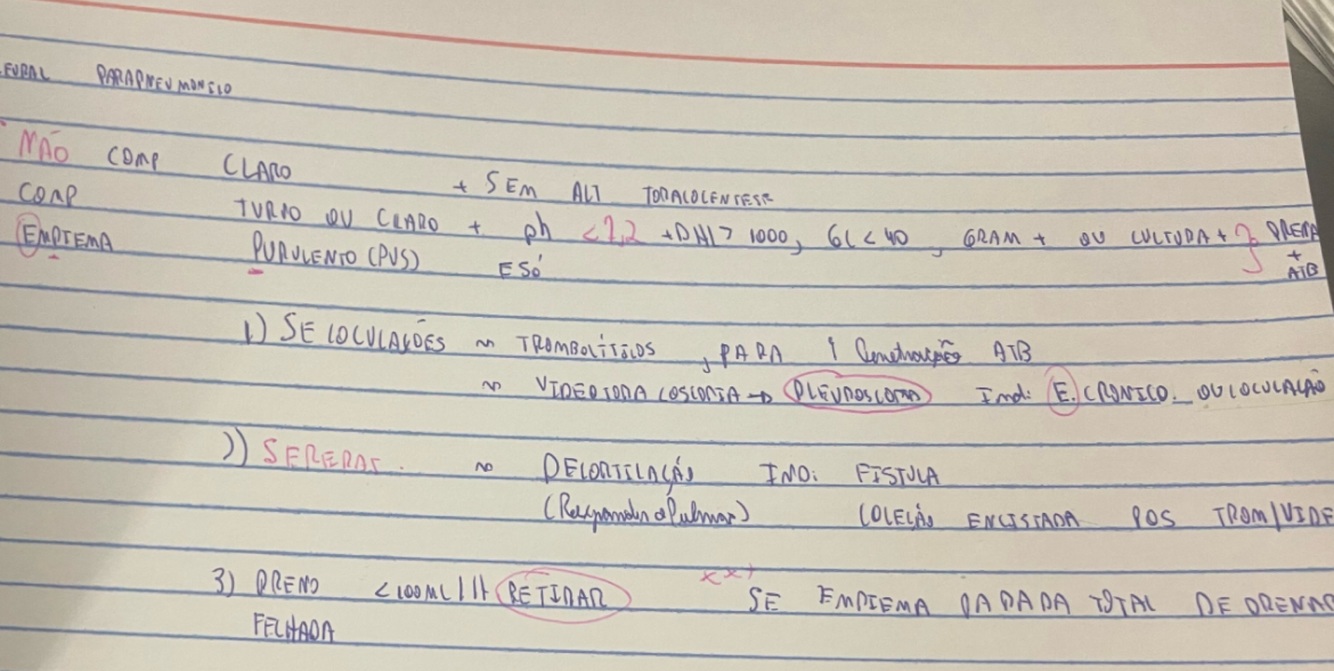 EURAL PARAPNEUMONICO
NÃO COMP CLARO + SEM ALT TORACOCENTESE
COMP TURVO OU CLARO + ph <7,2 + DHL > 1000, GL < 40, GRAM + OU CULTURA + } DRENA
EMPIEMA PURULENTO (PUS) E SÓ + ATB
1) SE LOCULAÇÕES ~ TROMBOLÍTICOS, PARA ↑ Penetração ATB
~ VIDEOTORACOSCOPIA → PLEUROSCOPIA Ind: E. CRONICO. OU LOCULAÇÃO
2) ~ DECORTICAÇÃO IND: FISTULA
(Reexpandir o Pulmao) COLEÇÃO ENCISTADA POS TROM/VIDE
3) DRENO <100ML/ RETIRAR SE EMPIEMA PARADA TOTAL DE DRENAG
FECHADA